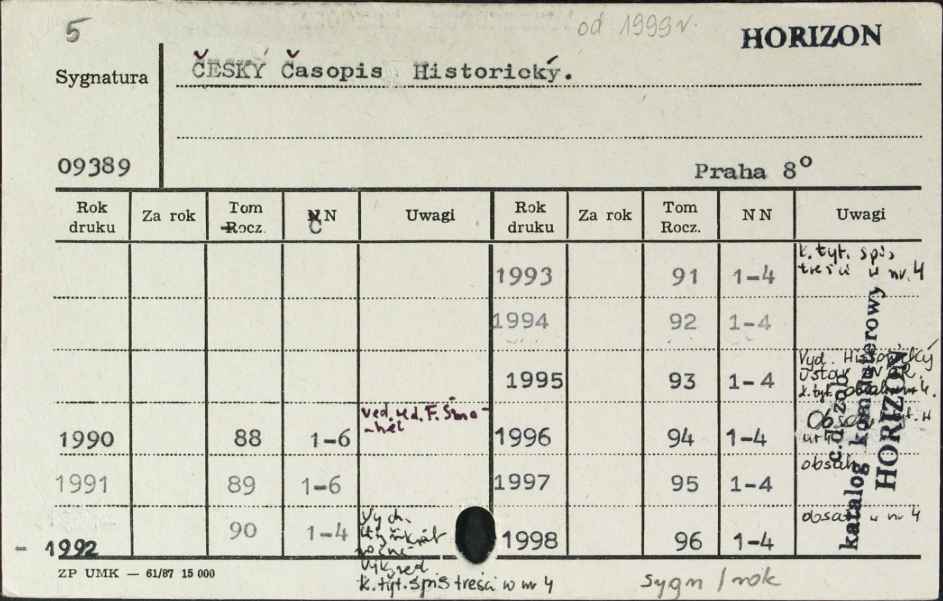 5
od 1999 r.
HORIZON
Sygnatura
ČESKÝ Časopis Historický.
09389
Praha 8°
Rok druku Za rok Tom Rocz. Č N Uwagi Rok druku Za rok Tom Rocz. N N Uwagi
1993 91 1-4 k. tyt. spis treści w nr. 4
1994 92 1-4
1995 93 1-4 Vyd. Historický
k. tyt. obsah
1990 88 1-6 ved. red. F. Šmahel 1996 94 1-4
1991 89 1-6 1997 95 1-4 obsah
- 1992 90 1-4 Vych. čtyřikrát ročně 1998 96 1-4 obsah w nr 4
c.d. zob.
katalog komputerowy
HORIZON
ZP UMK — 61/87 15 000
k. tyt. spis treści w nr 4
sygn / rok